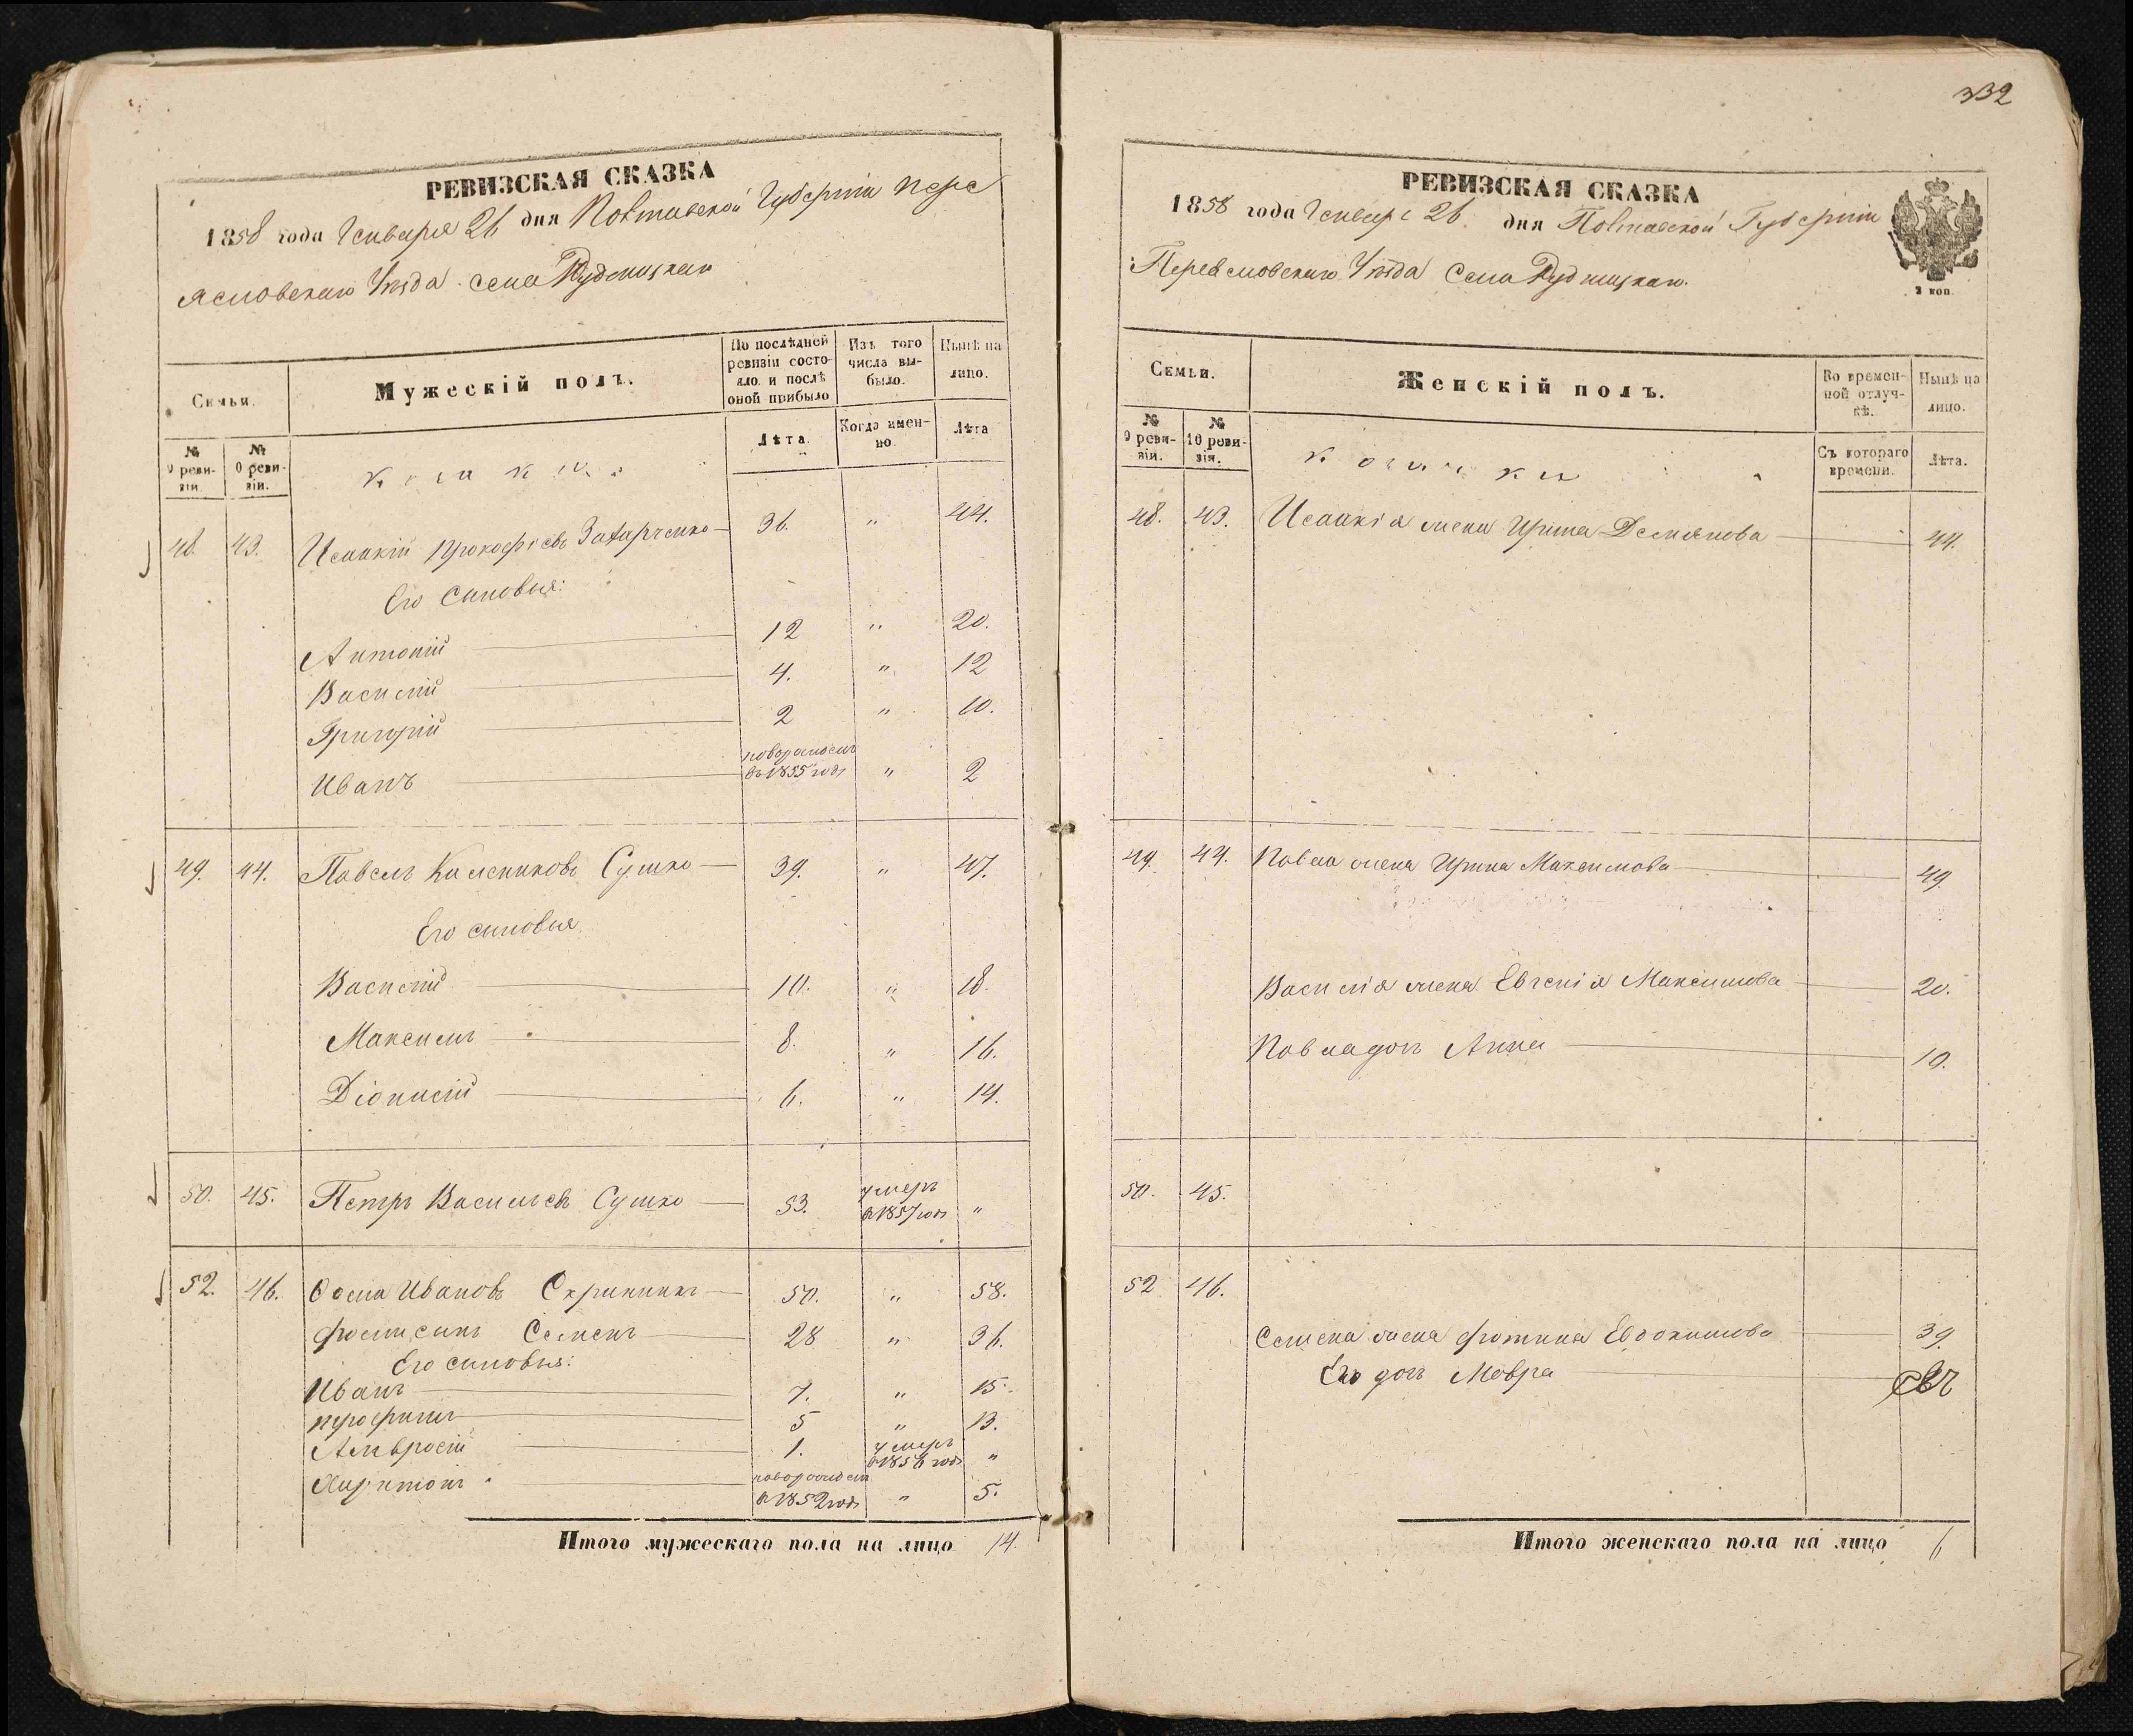 РЕВИЗСКАЯ СКАЗКА
1858 года Генваря 26 дня Полтавской Губерніи Пере
яславскаго Уѣзда Села Рудницкаго
Семьи.
Мужескій полъ.
По послѣдней ревизіи состояло и послѣ оной прибыло
Изъ того числа выбыло.
Нынѣ на лицо.
№ 9 ревизіи
№ 10 ревизіи.
козаки
Лѣта.
Когда именно.
Лѣта
48. 43. Исаакій Прокофіевъ Захарченко 36. " 44.
Его Сыновья:
Антоній 12 " 20.
Василій 4. " 12
Григорій 2 " 10.
Иванъ новорожден въ 1855 годѣ " 2
49. 44. Павелъ Калениковъ Сушко 39. " 47.
Его сыновья
Василій 10. " 18.
Максимъ 8. " 16.
Діонисій 6. " 14.
50. 45. Петръ Васильевъ Сушко 53. умеръ в 1857 годѣ "
52. 46. Фома Ивановъ Скрипникъ 50. " 58.
Фомы сынъ Семенъ 28 " 36.
Его сыновья:
Иванъ 7. " 15.
Трофимъ 5 " 13.
Амвросій 1. умеръ в 1856 годѣ "
Харитонъ новорожден в 1852 годѣ " 5.
Итого мужескаго пола на лицо 14.
332
РЕВИЗСКАЯ СКАЗКА
1858 года Генваря 26 дня Полтавской Губерніи
Переяславскаго Уѣзда Села Рудницкаго.
Семьи.
Женскій полъ.
Во временной отлучкѣ.
Нынѣ на лицо.
№ 9 ревизіи.
№ 10 ревизія.
козачки
Съ котораго времени.
Лѣта.
48. 43. Исаакія жена Ирина Демьянова 44.
49. 44. Павла жена Ирина Максимова 49
Василія жена Евгенія Максимова 20.
Павла доч Анна 10.
50. 45.
52 46.
Семена жена Фотина Евдокимова 39.
Его доч Мавра
Итого женскаго пола на лицо 6